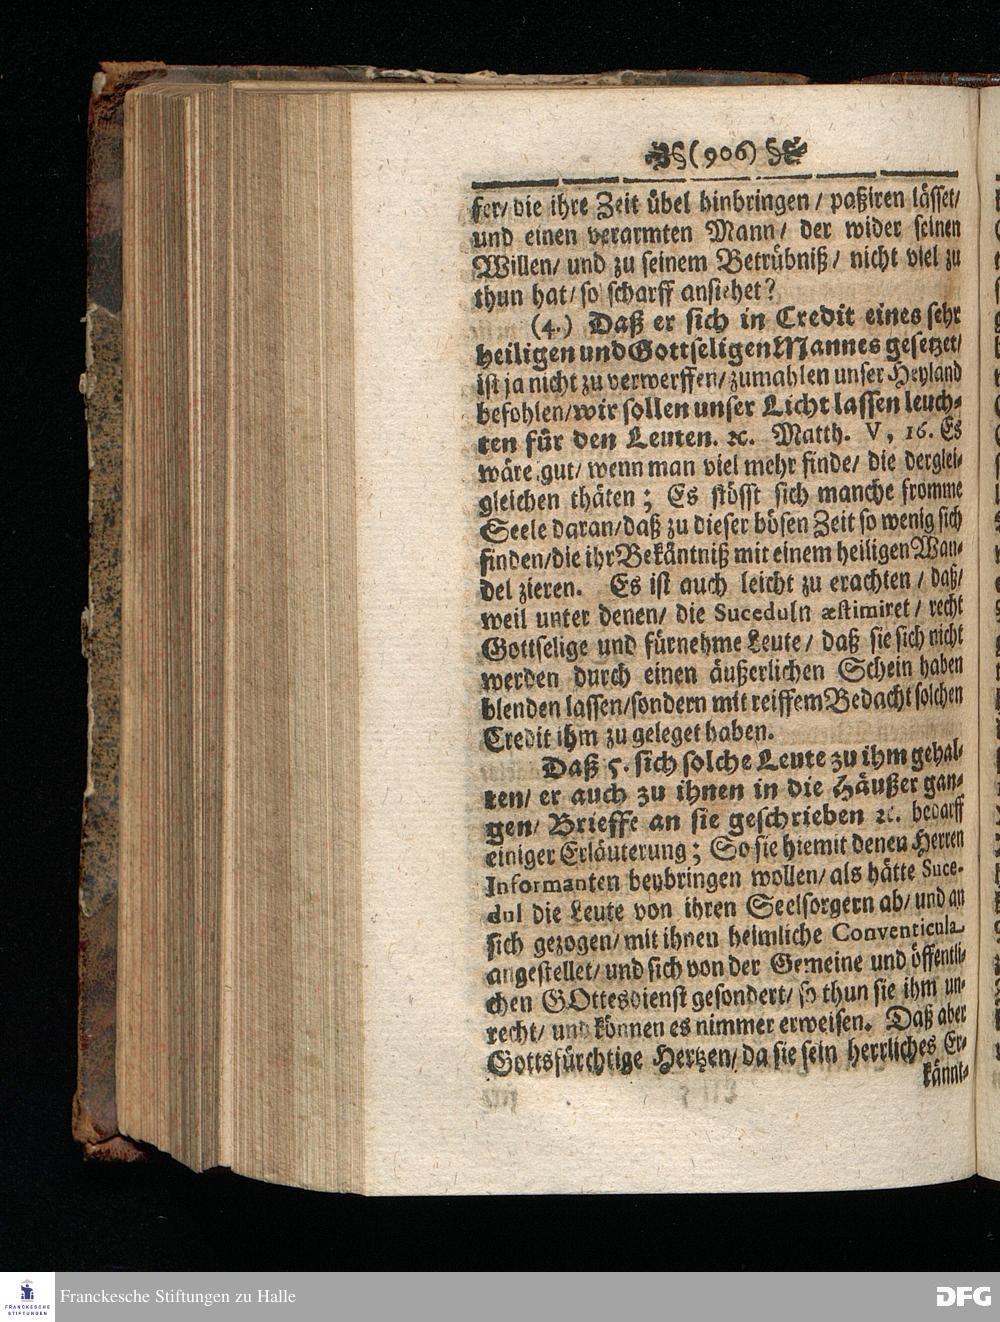 §(906)§
ser/ die ihre Zeit übel hinbringen / paßiren lässet/
und einen verarmten Mann/ der wider seinen
Willen/ und zu seinem Betrübniß/ nicht viel zu
thun hat/ so scharff ansiehet?
(4.) Daß er sich in Credit eines sehr
heiligen und Gottseligen Mannes gesetzet/
ist ja nicht zu verwerffen/ zumahlen unser Heyland
befohlen/ wir sollen unser Licht lassen leuch-
ten für den Leuten. ꝛc. Matth. V, 16. Es
wäre gut/ wenn man viel mehr finde/ die derglei-
gleichen thäten; Es stösst sich manche fromme
Seele daran/ daß zu dieser bösen Zeit so wenig sich
finden/ die ihr Bekäntniß mit einem heiligen Wan-
del zieren. Es ist auch leicht zu erachten / daß/
weil unter denen/ die Suceduln æstimiret / recht
Gottselige und fürnehme Leute / daß sie sich nicht
werden durch einen äußerlichen Schein haben
blenden lassen/ sondern mit reiffem Bedacht solchen
Credit ihm zu geleget haben.
Daß 5. sich solche Leute zu ihm gehal-
ten/ er auch zu ihnen in die Häußer gan-
gen/ Brieffe an sie geschrieben ꝛc. bedarff
einiger Erläuterung; So sie hiemit denen Herren
Informanten beybringen wollen/ als hätte Suce-
dul die Leute von ihren Seelsorgern ab/ und an
sich gezogen/ mit ihnen heimliche Conventicula
angestellet/ und sich von der Gemeine und öffentli-
chen GOttesdienst gesondert/ so thun sie ihm un-
recht/ und können es nimmer erweisen. Daß aber
Gottsfürchtige Hertzen/ da sie sein herrliches Er-
kännt-
FRANCKESCHE
STIFTUNGEN
Franckesche Stiftungen zu Halle
DFG